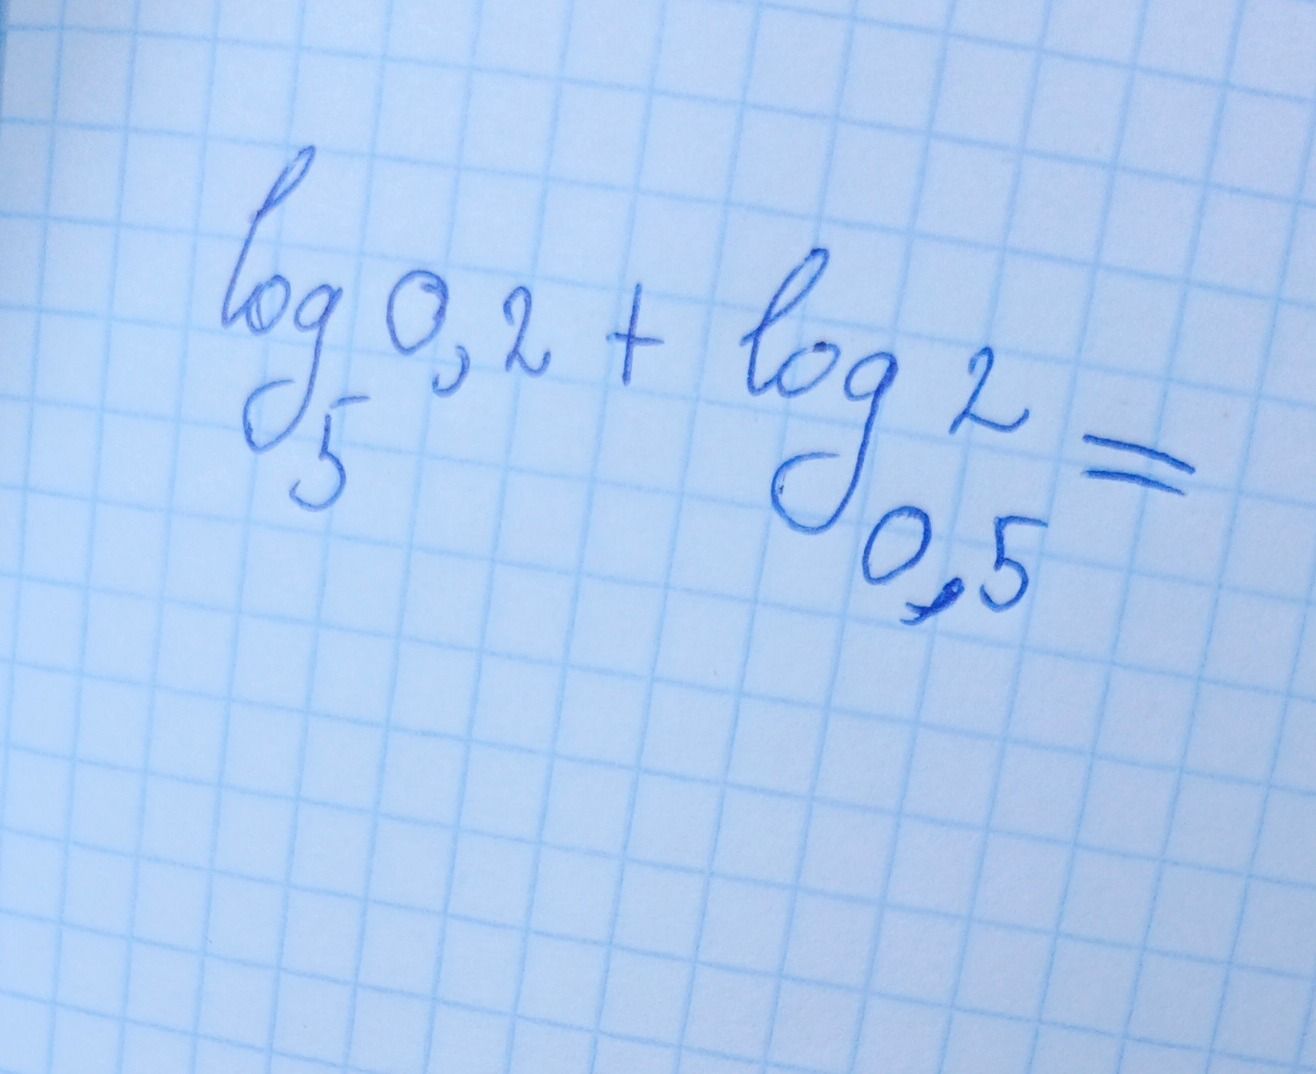 log₅ 0,2 + log₀,₅ 2 =